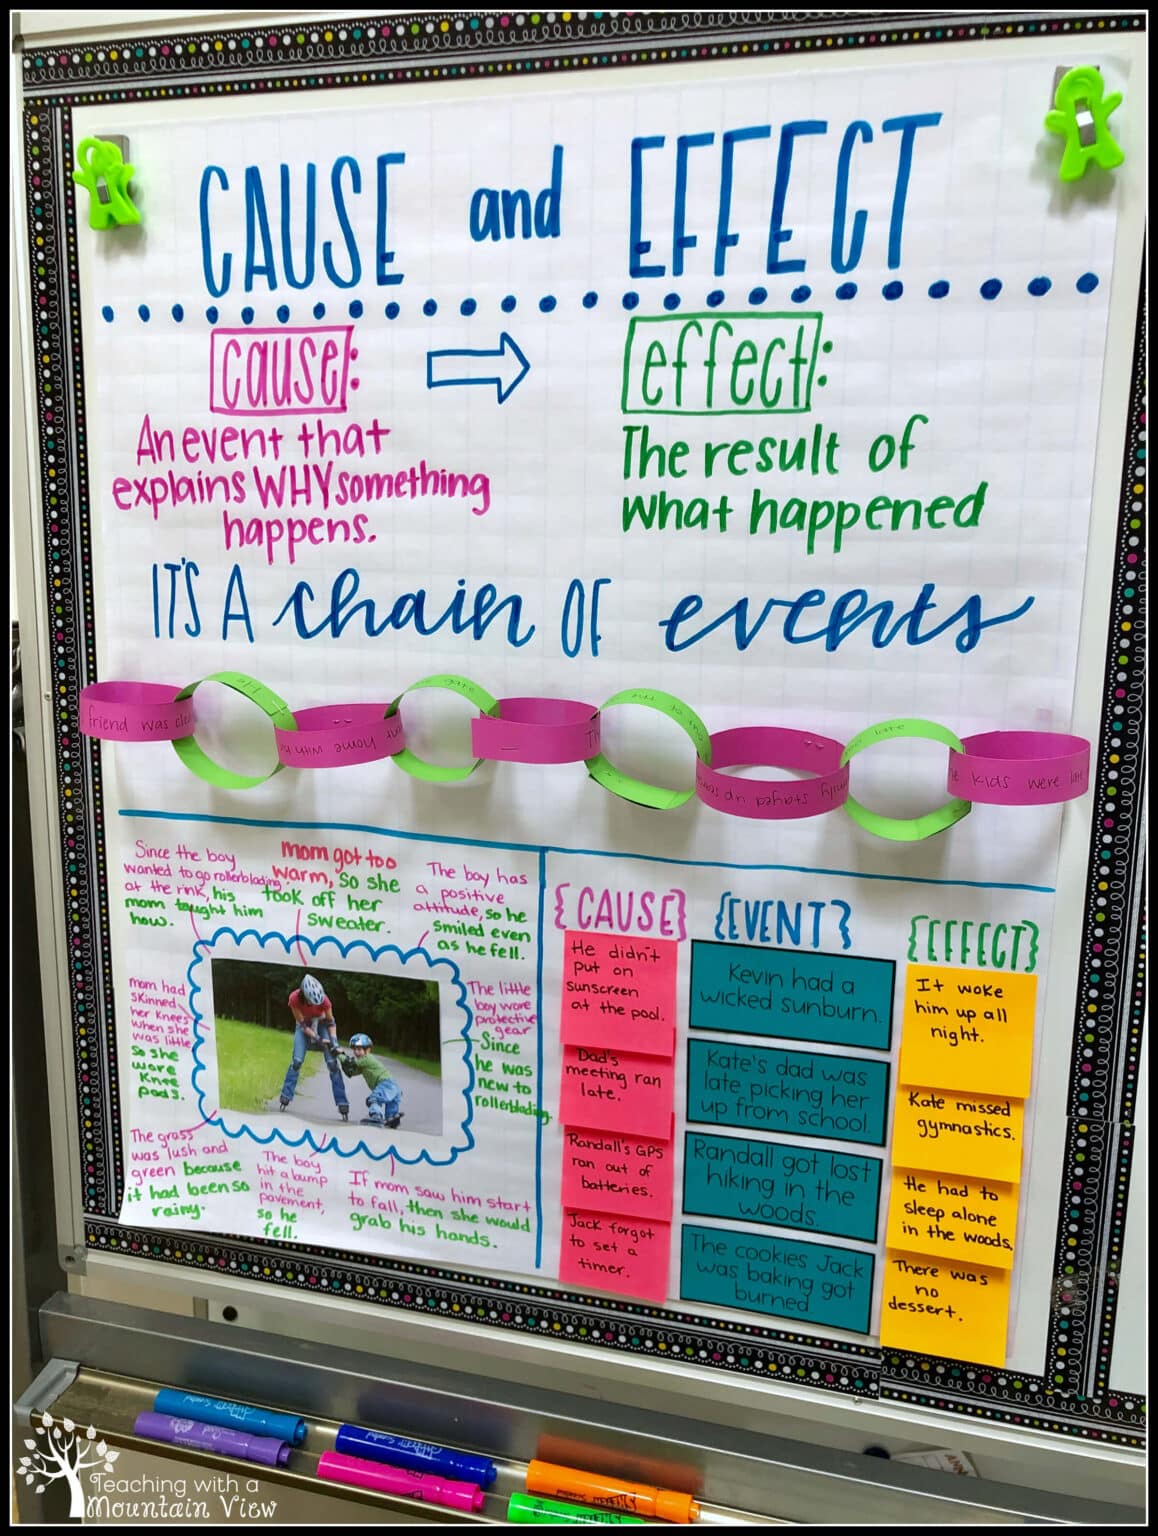 CAUSE and EFFECT
cause:
An event that
explains WHY something
happens.
effect:
The result of
what happened
IT'S A chain OF events
friend was
home with
stayed up
late
kids were
Since the boy
wanted to go rollerblading
at the rink, his
mom taught him
how.
mom got too
warm, so she
took off her
sweater.
The boy has
a positive
attitude, so he
smiled even
as he fell.
mom had
skinned
her knees
when she
was little
so she
wore
knee
pads.
The little
boy wore
protective
gear
Since
he was
new to
rollerblading.
The grass
was lush and
green because
it had been so
rainy.
The boy
hit a bump
in the
pavement,
so he
fell.
If mom saw him start
to fall, then she would
grab his hands.
{CAUSE}
He didn't
put on
sunscreen
at the pool.
Dad's
meeting ran
late.
Randall's GPS
ran out of
batteries.
Jack forgot
to set a
timer.
{EVENT}
Kevin had a
wicked sunburn.
Kate's dad was
late picking her
up from school.
Randall got lost
hiking in the
woods.
The cookies Jack
was baking got
burned
{EFFECT}
It woke
him up all
night.
Kate missed
gymnastics.
He had to
sleep alone
in the woods.
There was
no
dessert.
Teaching with a
Mountain View